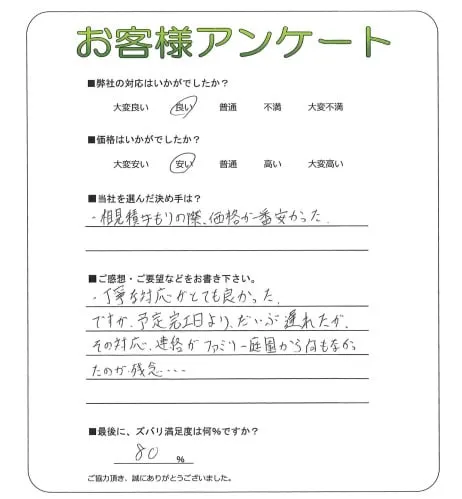 お客様アンケート
■弊社の対応はいかがでしたか？
大変良い 良い 普通 不満 大変不満
■価格はいかがでしたか？
大変安い 安い 普通 高い 大変高い
■当社を選んだ決め手は？
・相見積もりの際、価格が一番安かった.
■ご感想・ご要望などをお書き下さい。
・丁寧な対応がとても良かった.
ですが、予定完工日より、だいぶ遅れたが、
その対応、連絡がファミリー庭園から何もなかっ
たのが残念・・・
■最後に、ズバリ満足度は何％ですか？
80 %
ご協力頂き、誠にありがとうございました。